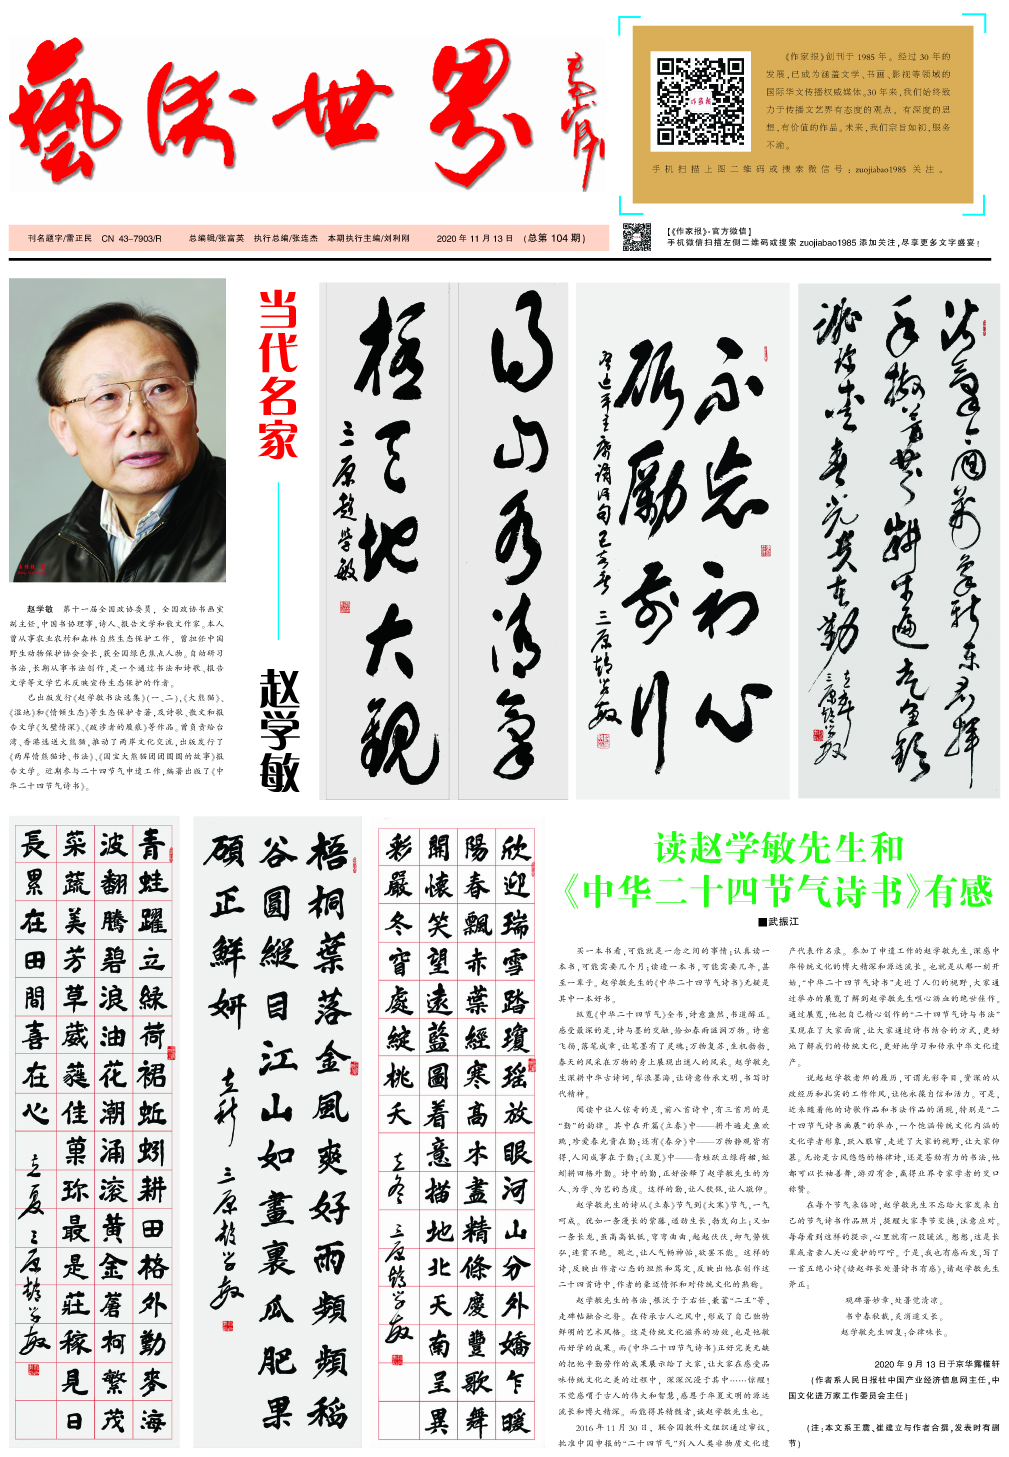 藝術世界
《作家报》创刊于 1985 年。经过 30 年的
发展,已成为涵盖文学、书画、影视等领域的
国际华文传播权威媒体。30 年来,我们始终致
力于传播文艺界有态度的观点, 有深度的思
想,有价值的作品。未来,我们宗旨如初,服务
不渝。
手机扫描上图二维码或搜索微信号:zuojiabao1985 关注。
刊名题字/雷正民 CN 43-7903/R 总编辑/张富英 执行总编/张连杰 本期执行主编/刘利刚 2020 年 11 月 13 日 (总第 104 期)
【《作家报》·官方微信】
手机微信扫描左侧二维码或搜索 zuojiabao1985 添加关注,尽享更多文字盛宴!
当代名家
赵学敏
赵学敏 第十一届全国政协委员, 全国政协书画室
副主任,中国书协理事,诗人、报告文学和散文作家。本人
曾从事农业农村和森林自然生态保护工作, 曾担任中国
野生动物保护协会会长,获全国绿色焦点人物。自幼研习
书法,长期从事书法创作,是一个通过书法和诗歌、报告
文学等文学艺术反映宣传生态保护的作者。
已出版发行《赵学敏书法选集》(一、二),《大熊猫》、
《湿地》和《情倾生态》等生态保护专著,及诗歌、散文和报
告文学《戈壁情深》、《跋涉者的履痕》等作品。曾负责给台
湾、香港选送大熊猫,推动了两岸文化交流,出版发行了
《两岸情熊猫诗、书法》、《国宝大熊猫团团圆圆的故事》报
告文学。近期参与二十四节气申遗工作,编著出版了《中
华二十四节气诗书》。
得山水清氣
極天地大觀
三原趙学敏
不忘初心
砥礪前行
三原趙学敏
青蛙躍立緑荷裙蚯蚓耕田格外勤麥海
波翻騰碧浪油花潮涌滚黄金蓍柯繁茂
菜蔬美芳草葳蕤佳菓珎最是莊稼見日
長累在田間喜在心
立夏 三原趙学敏
梧桐葉落金風爽好雨頻頻稻
谷圓縱目江山如畫裏瓜肥果
碩正鮮妍
立秋 三原趙学敏
欣迎瑞雪踏瓊瑶放眼河山分外嬌乍暖
陽春飄赤葉經寒高木盡精條慶豐歌舞
開懷笑望遠藍圖着意描地北天南呈異
彩嚴冬窅處綻桃夭
立冬 三原趙学敏
读赵学敏先生和
《中华二十四节气诗书》有感
■武振江
买一本书看,可能就是一念之间的事情;认真读一
本书,可能需要几个月;读透一本书,可能需要几年,甚
至一辈子。赵学敏先生的《中华二十四节气诗书》无疑是
其中一本好书。
纵览《中华二十四节气》全书,诗意盎然,书道醇正。
感受最深的是,诗与墨的交融,恰如春雨滋润万物。诗意
飞扬,落笔成章,让笔墨有了灵魂;万物复苏,生机勃勃,
春天的风采在万物的身上展现出迷人的风采。赵学敏先
生深耕中华古诗词,犁浪墨海,让诗意传承文明,书写时
代精神。
阅读中让人惊奇的是,前八首诗中,有三首用的是
“勤”的韵律。其中在开篇《立春》中——耕牛遍走皇欢
晚,珍爱春光贵在勤;还有《春分》中——万物静观皆有
得,人间成事在于勤;《立夏》中——青蛙跃立绿荷裙,蚯
蚓耕田格外勤。诗中的勤,正好诠释了赵学敏先生的为
人、为学、为艺的态度。这样的勤,让人钦佩,让人敬仰。
赵学敏先生的诗从《立春》节气到《大寒》节气,一气
呵成。犹如一条漫长的紫藤,遒劲生长,勃发向上;又如
一条长龙,虽高高低低,弯弯曲曲,起起伏伏,却气势恢
弘,连贯不绝。观之,让人气畅神怡,欲罢不能。这样的
诗,反映出作者心态的坦然和笃定,反映出他在创作这
二十四首诗中,作者的豪迈情怀和对传统文化的热恋。
赵学敏先生的书法,根沃于于右任,兼蓄“二王”等,
走碑帖融合之路。在传承古人之风中,形成了自己独特
鲜明的艺术风格。这是传统文化滋养的功效,也是他敏
而好学的成果。而《中华二十四节气诗书》正好完美无缺
的把他辛勤劳作的成果展示给了大家,让大家在感受品
味传统文化之美的过程中, 深深沉浸于其中……惊醒!
不觉感喟于古人的伟大和智慧,感恩于华夏文明的源远
流长和博大精深。而能得其精髓者,诚赵学敏先生也。
2016 年 11 月 30 日, 联合国教科文组织通过审议,
批准中国申报的“二十四节气”列入人类非物质文化遗
产代表作名录。参加了申遗工作的赵学敏先生,深感中
华传统文化的博大精深和源远流长。也就是从那一刻开
始,“中华二十四节气诗书”走进了人们的视野,大家通
过举办的展览了解到赵学敏先生呕心沥血的绝世佳作。
通过展览,他把自己精心创作的“二十四节气诗与书法”
呈现在了大家面前,让大家通过诗书结合的方式,更好
地了解我们的传统文化,更好地学习和传承中华文化遗
产。
说起赵学敏老师的履历,可谓光彩夺目,资深的从
政经历和扎实的工作作风,让他永葆自信和活力。可是,
近来随着他的诗歌作品和书法作品的涌现,特别是“二
十四节气诗书画展”的举办,一个饱谙传统文化内涵的
文化学者形象,跃入眼帘,走进了大家的视野,让大家仰
慕。无论是古风悠悠的格律诗,还是苍劲有力的书法,他
都可以长袖善舞,游刃有余,赢得业界专家学者的交口
称赞。
在每个节气来临时,赵学敏先生不忘给大家发来自
己的节气诗书作品照片,提醒大家季节变换,注意应对。
每每看到这样的提示,心里就有一股暖流。想想,这是长
辈或者亲人关心爱护的叮咛。于是,我也有感而发,写了
一首五绝小诗《读赵部长处暑诗书有感》,请赵学敏先生
斧正:
观碑著妙章,处暑觉清凉。
书中春秋载,炎消道义长。
赵学敏先生回复:合律味长。
2020 年 9 月 13 日于京华露槿轩
(作者系人民日报社中国产业经济信息网主任,中
国文化进万家工作委员会主任)
(注:本文系王震、崔建立与作者合撰,发表时有删
节)